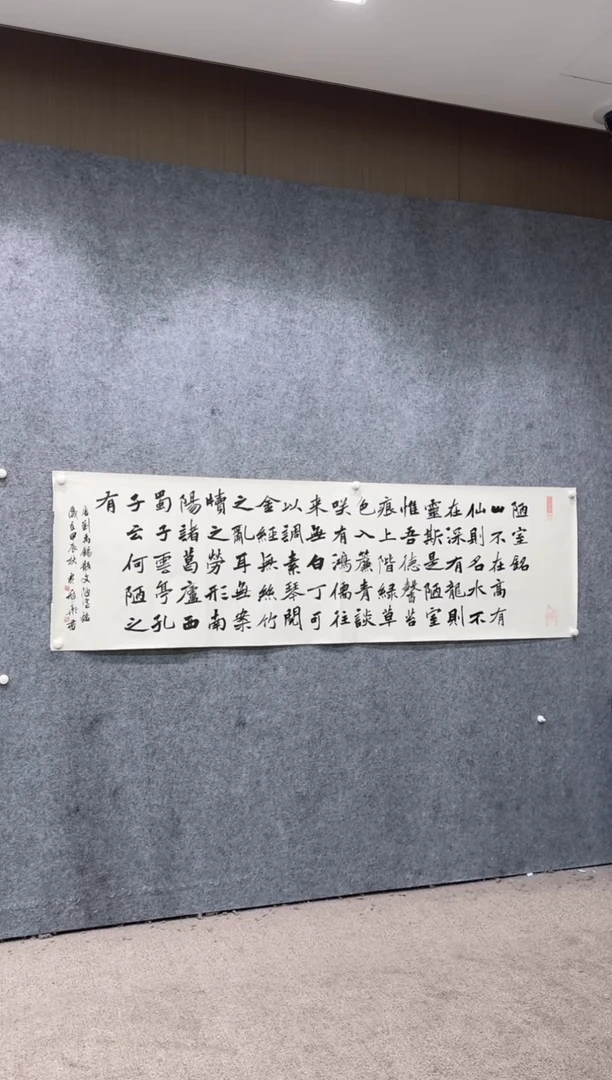 陋室銘
山不在高有
仙則名水不
在深有龍則
靈斯是陋室
惟吾德馨苔
痕上階綠草
色入簾青談
咲有鴻儒往
来無白丁可
以調素琴閱
金經無絲竹
之亂耳無案
牘之勞形南
陽諸葛廬西
蜀子雲亭孔
子云何陋之
有
唐劉禹錫散文陋室銘
歲在甲辰秋 書